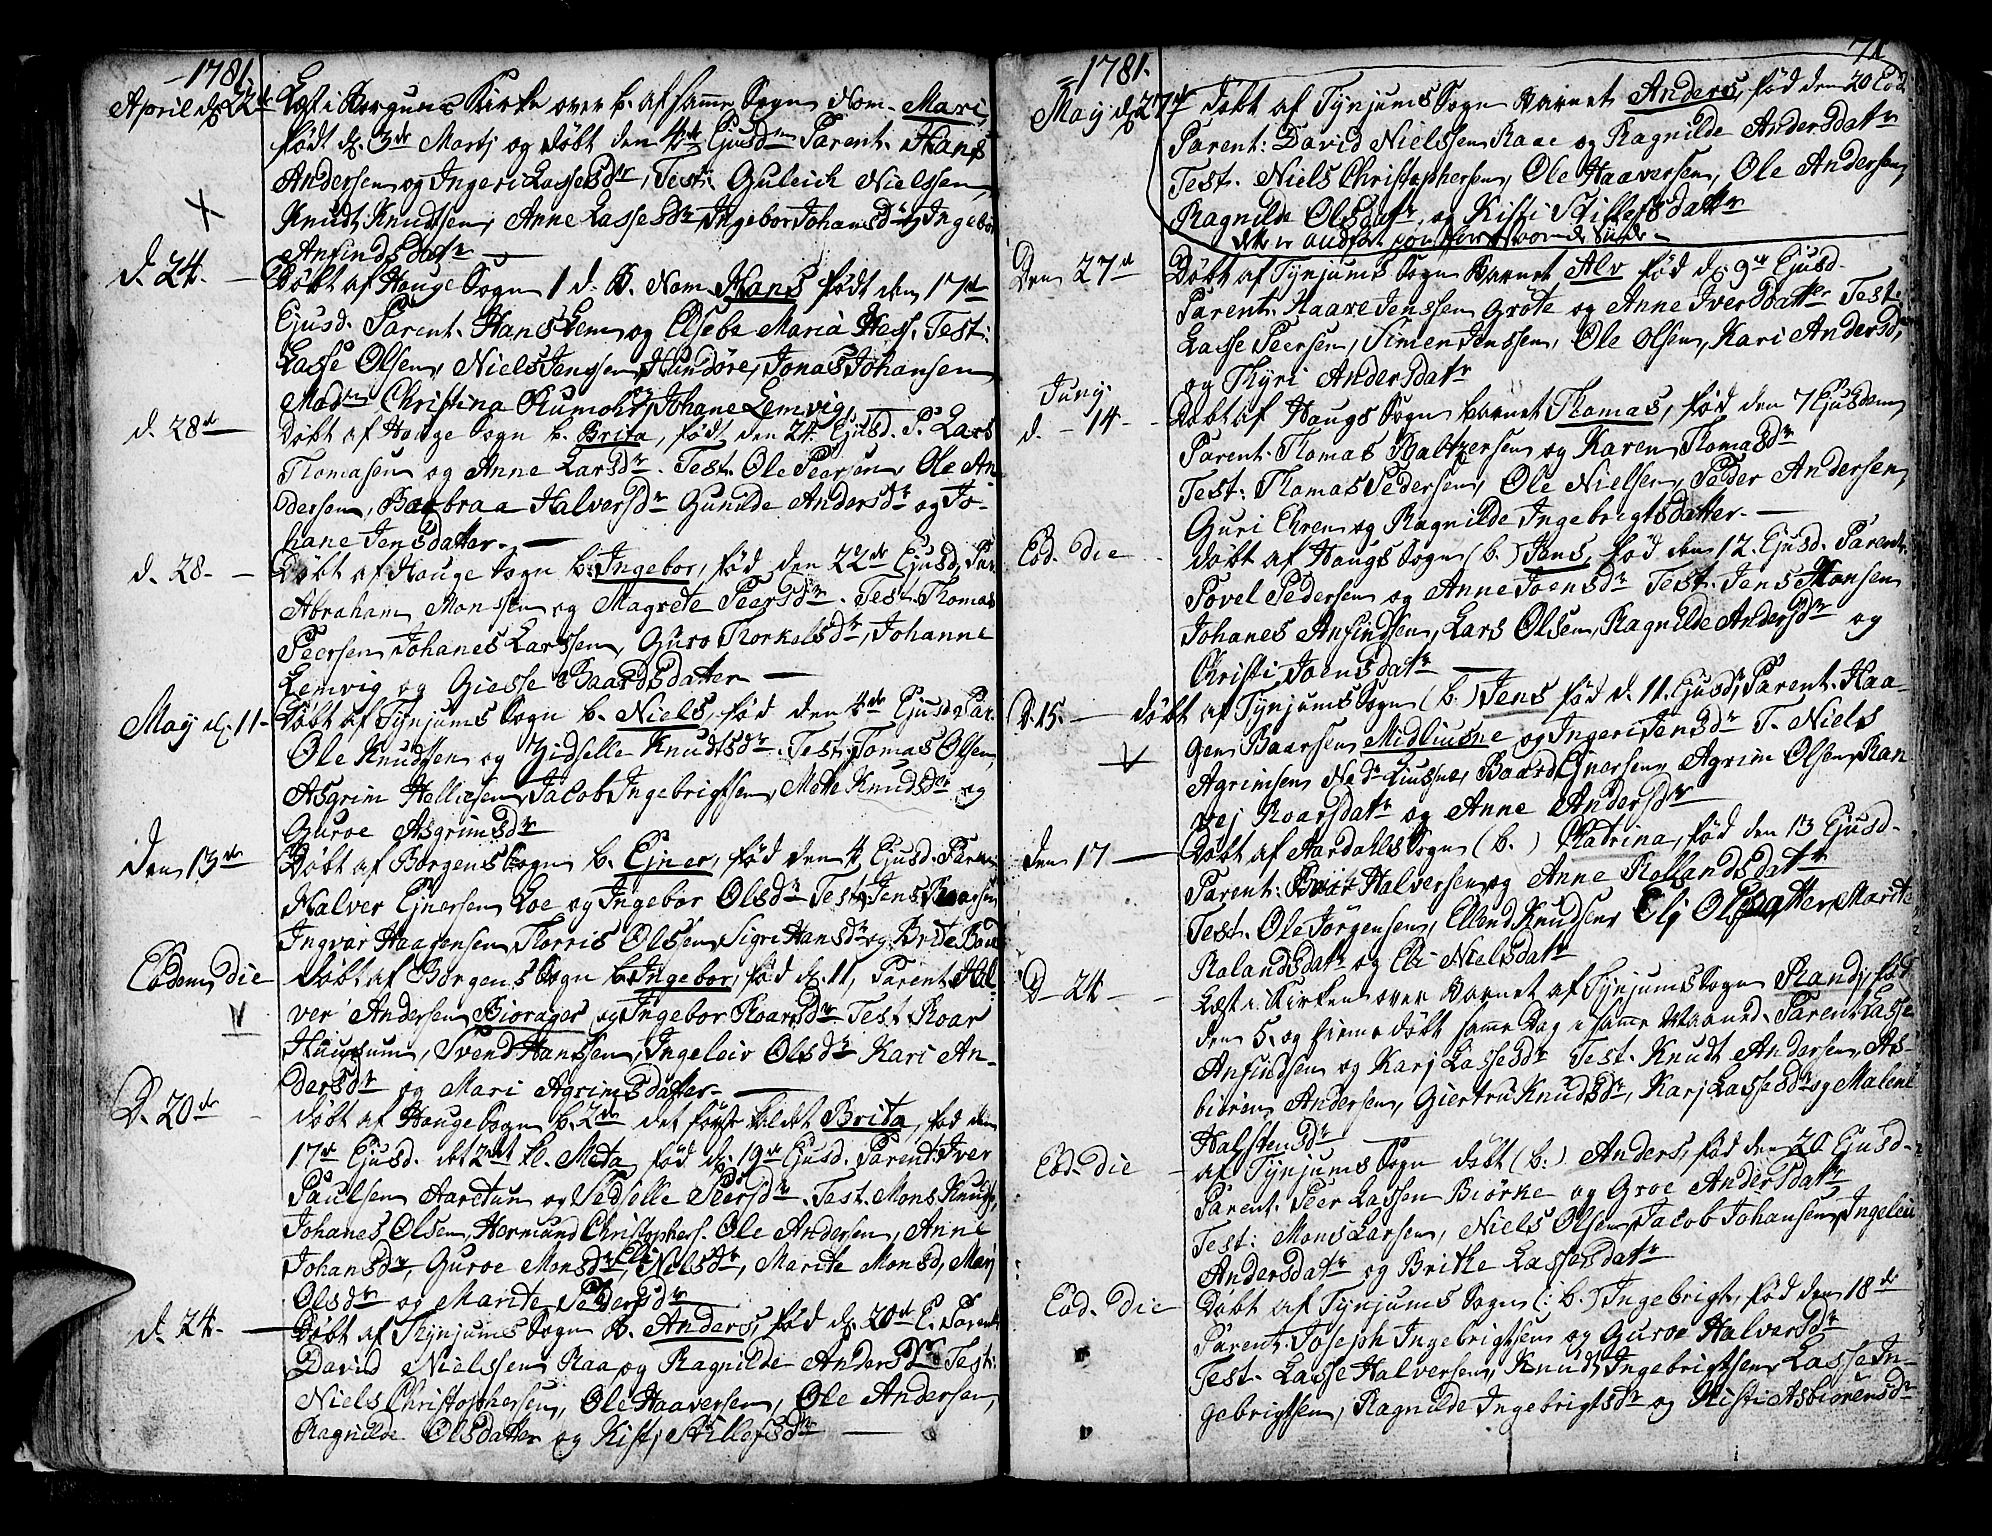 -1781.
April d. 22de Læst i Borgunds Kirke over b. af samme Sogn Nom. Mari,
født d. 3de Martj og døbt den 4de Ejusdm Parent. Hans
Andersen og Ingeri Lassesdr, Test: Guleich Nielssen,
Knudt Knudtsen, Anne Lassesdr, Ingebor Johansdr og Ingebor
Anfindsdatr —
d. 24. — Døbt af Hauge Sogn 1 d. B. Nom. Hans født den 17de
Ejusd. Parent. Hans Lem og Elsebe Maria Hess. Test:
Lasse Olsen, Niels Jenssen Hundere, Jonas Johansen
Madm Christina Rumohr, Johane Lemvig. —
d. 28de Døbt af Hauge Sogn b. Brita, født den 24. Ejusd. P. Lars
Thomasen og Anne Larsdr. Test. Ole Peersen, Ole An-
dersen, Barbraa Halversdr Gunilde Andersdr og Jo-
hane Jensdatter. —
d. 28. — Døbt af Hauge Sogn b. Ingebor, fød den 22de Ejusd, Par.
Abraham Monssen og Magrete Peersdr. Test. Thomas
Peersen Johanes Larssen, Guro Thorkelsdr, Johanne
Lemvig og Giesse Baardsdatter —
May d. 11- Døbt af Tynjums Sogn b. Niels, fød den 4de Ejusd. Par.
Ole Knudsen og Zidselle Knudtsdr. Test. Tomas Olsen,
Asgrim Helliesen, Jacob Ingebrigtsen, Mette Knudsdr og
Guroe Asgrimsdr
den 13de Døbt af Borgens Sogn b. Ejner, fød den 4 Ejusd. Paren.
Halver Ejnersen Loe og Ingebor Olsdr Test Jens Baarsen
Ingvar Haagensen, Thorris Olsen, Sigri Hansdr og Brite
Eodem die døbt af Borgens Sogn b. Ingebor, fød d. 11, Parent. Hal-
V
ver Andersen Biorages og Ingebor Roarsdr. Test. Roar
Huusum, Svend Hanssen, Ingeleiv Olsdr Kari An-
dersdr og Mari Agrimsdatter. —
D. 20de døbt af Hauge Sogn b. 2de det første kaldet Brita, fød den
17de Ejusd. det 2det kl. Meta fød d. 19de Ejusd. Parent. Iver
Paulsen Aaretun og Sedselle Peersdr. Test. Mons Knudts,
Johanes Olsen, Hermund Christophers. Ole Andersen, Anne
Johansdr, Guroe Monsdr, Eli Nilsdr, Marite Monsd, Marj
Olsdr og Marite Pedersdr
d. 24. — Døbt af Tynjums Sogn b. Anders, fød d. 20de E. Parent
David Nielssen Raa og Ragnilde Andersdr Test:
Niels Christophersen, Ole Haaversen, Ole Andersen,
Ragnilde Olsdatter og Kisti Stillefsdr —
71
-1781.
May d. 27de døbt af Tynjums Sogn Barnet Anders, fød den 20 Eod.
Parent: David Nielssen Raae og Ragnilde Andersdatr
Test. Niels Christophersen, Ole Haaversen, Ole Andersen,
Ragnilde Olsdatr, og Kisti Stillefsdattr
dette er indført paa forestaaende Side -
Den 27de Døbt af Tynjums Sogn Barnet Alv fød d. 9de Ejusd.
Parent. Haare Jenssen Grøte og Anne Iversdatter Test:
Lasse Peersen, Simen Jenssen, Ole Olsen, Kari Andersdr,
og Thyri Andersdatr
Junij
d. -14- Døbt af Haugs Sogn barnet Thomas, fød den 7 Ejusdem
Parent. Thomas Baltzersen og Karen Thomasdr
Test: Thomas Pedersen, Ole Nielsen, Peder Andersen,
Guri Ehren og Ragnilde Ingebrigtsdatter. —
Eod. die døbt af Haugs Sogn (b.) Jens, fød den 12. Ejusd. Parent.
Povel Pedersen og Anne Joensdr Test. Jens Hansen
Johanes Anfindsen, Lars Olsen, Ragnilde Andersdr og
Christi Joensdatr —
D. 15. — døbt af Tynjums Sogn (b.) Jens fød d. 11. Ejusd, Parent. Haa-
gen Baarsen Midliusne og Ingeri Jensdr T. Niels
V
Agrimsen Nedr Liusne, Baard Ejnersen, Agrim Olsen, Ran
vej Roarsdatr og Anne Andersdr
den 17 — Døbt af Aardahls Sogn (b.) Katrina, fød den 13 Ejusd.
Parent: Halversen og Anne Rollandsdatr
Test. Ole Jørgensen, Ellend Knudsen, Elj Olsdatter, Marite
Ralandsdatr og Eli Nielsdatr
D. 24 — Læst i Kirken over Barnet af Tynjums Sogn Randj, fød
den 5. og hieme døbt samme Dag i samme Maaned. Parent. Lasse
Anfindsen og Karj Lassesdr Test. Knudt Andersen, As-
biørn Andersen, Giertru Knudsdr, Karj Lassesdr og Malene
Halstensdr —
Eod. die — af Tynjums Sogn døbt (b.) Anders, fød den 20 Ejusd.
Parent. Peer Lassen Biørke og Groe Andersdatr
Test: Mons Larsen, Niels Olsen, Jacob Johansen, Ingeleiv
Andersdatr og Britte Lassesdatr
Eod. die Døbt af Tynjums Sogn (: b.) Ingebrigt, fød den 18de
Parent. Joseph Ingebrigtsen og Guroe Halversdr
Test. Lasse Halversen, Knudt Ingebrigtsen, Lasse In-
gebrigtsen, Ragnilde Ingebrigtsdr og Kisti Asbiørnsdr